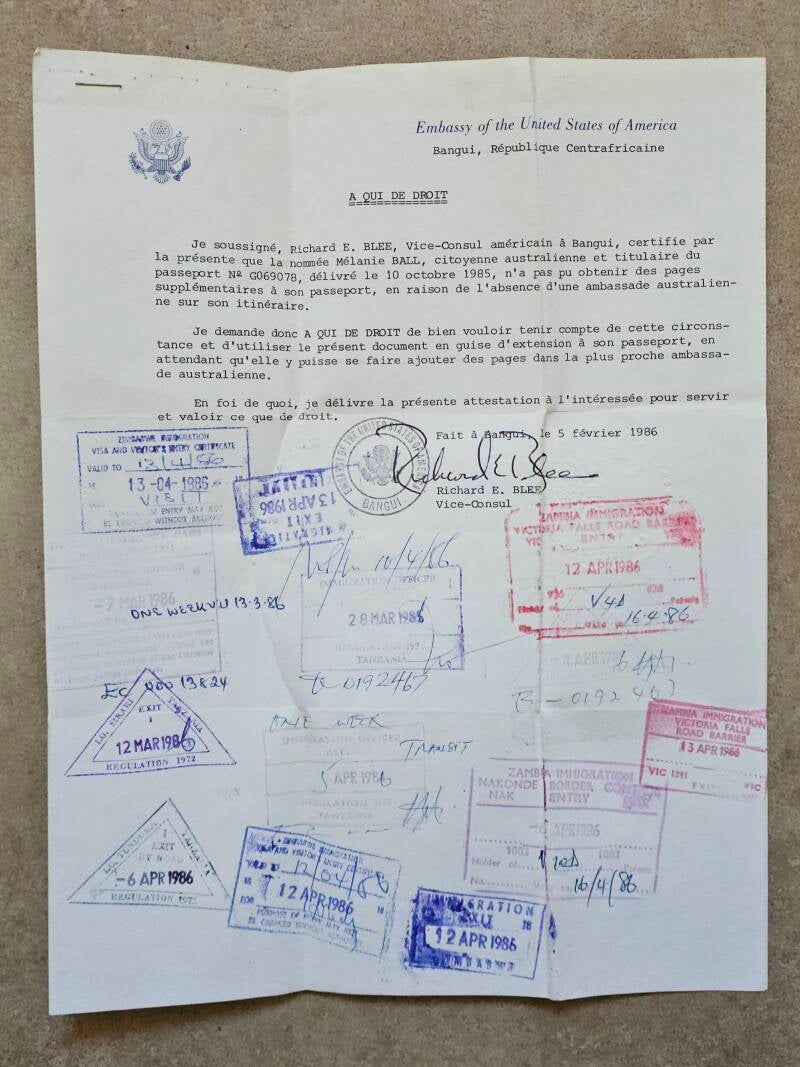 Embassy of the United States of America
Bangui, République Centrafricaine
A QUI DE DROIT
Je soussigné, Richard E. BLEE, Vice-Consul américain à Bangui, certifie par
la présente que la nommée Mélanie BALL, citoyenne australienne et titulaire du
passeport Nº G069078, délivré le 10 octobre 1985, n'a pas pu obtenir des pages
supplémentaires à son passeport, en raison de l'absence d'une ambassade australien-
ne sur son itinéraire.
Je demande donc A QUI DE DROIT de bien vouloir tenir compte de cette circons-
tance et d'utiliser le présent document en guise d'extension à son passeport, en
attendant qu'elle y puisse se faire ajouter des pages dans la plus proche ambassa-
de australienne.
En foi de quoi, je délivre la présente attestation à l'intéressée pour servir
et valoir ce que de droit.
Fait à Bangui, le 5 février 1986
EMBASSY OF THE UNITED STATES OF AMERICA
BANGUI
Richard E. Blee
Richard E. BLEE
Vice-Consul
ZIMBABWE IMMIGRATION
VISA AND VISITOR'S ENTRY CERTIFICATE
VALID TO 13/4/86
13-04-1986
VISIT
OF ENTRY MAY NOT
WITHOUT
13 APR 1986
EXIT
ZAMBIA IMMIGRATION
VICTORIA FALLS ROAD BARRIER
ENTRY
12 APR 1986
936 936
16.4.86
10/4/86
IMMIGRATION OFFICER 1
28 MAR 1986
REGULATION 1972
TANZANIA
0192467
-7 MAR 1986
ONE WEEK 13.3.86
4 APR
019246
13824
EXIT
1
12 MAR 1986
TANZANIA
REGULATION 1972
ONE WEEK
TRANSIT
IMMIGRATION OFFICER
5 APR 1986
REGULATION
TANZANIA
ZAMBIA IMMIGRATION
VICTORIA FALLS
ROAD BARRIER
13 APR 1986
VIC 1291 VIC
EXIT
ZAMBIA IMMIGRATION
NAKONDE BORDER
NAK ENTRY
APR 1986
1003 1003
Holder of
No.
16/4/86
1
EXIT
BY ROAD
-6 APR 1986
REGULATION 1972
ZIMBABWE IMMIGRATION
VISA AND VISITOR'S ENTRY
VALID TO 12/04/86
12 APR 1986 18
FOR
PURPOSE OF ENTRY MAY NOT
BE CHANGED WITHOUT AUTHORITY
IMMIGRATION
EXIT 18
12 APR 1986
ZIMBABWE